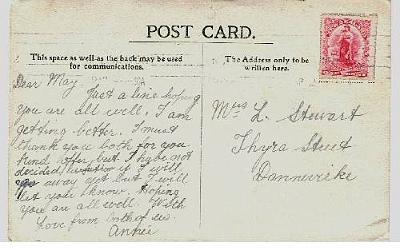 POST CARD.
This space as well as the back may be used
for communications.
The Address only to be
written here.
Dear May
Just a line hoping
you are all well. I am
getting better. I must
thank you both for you
kind offer but I have not
decided if I will
go away yet but I will
let you know. Hoping
you are all well. With
Love from both of us.
Annie
Mrs L. Stewart
Thyra Street
Dannevirke